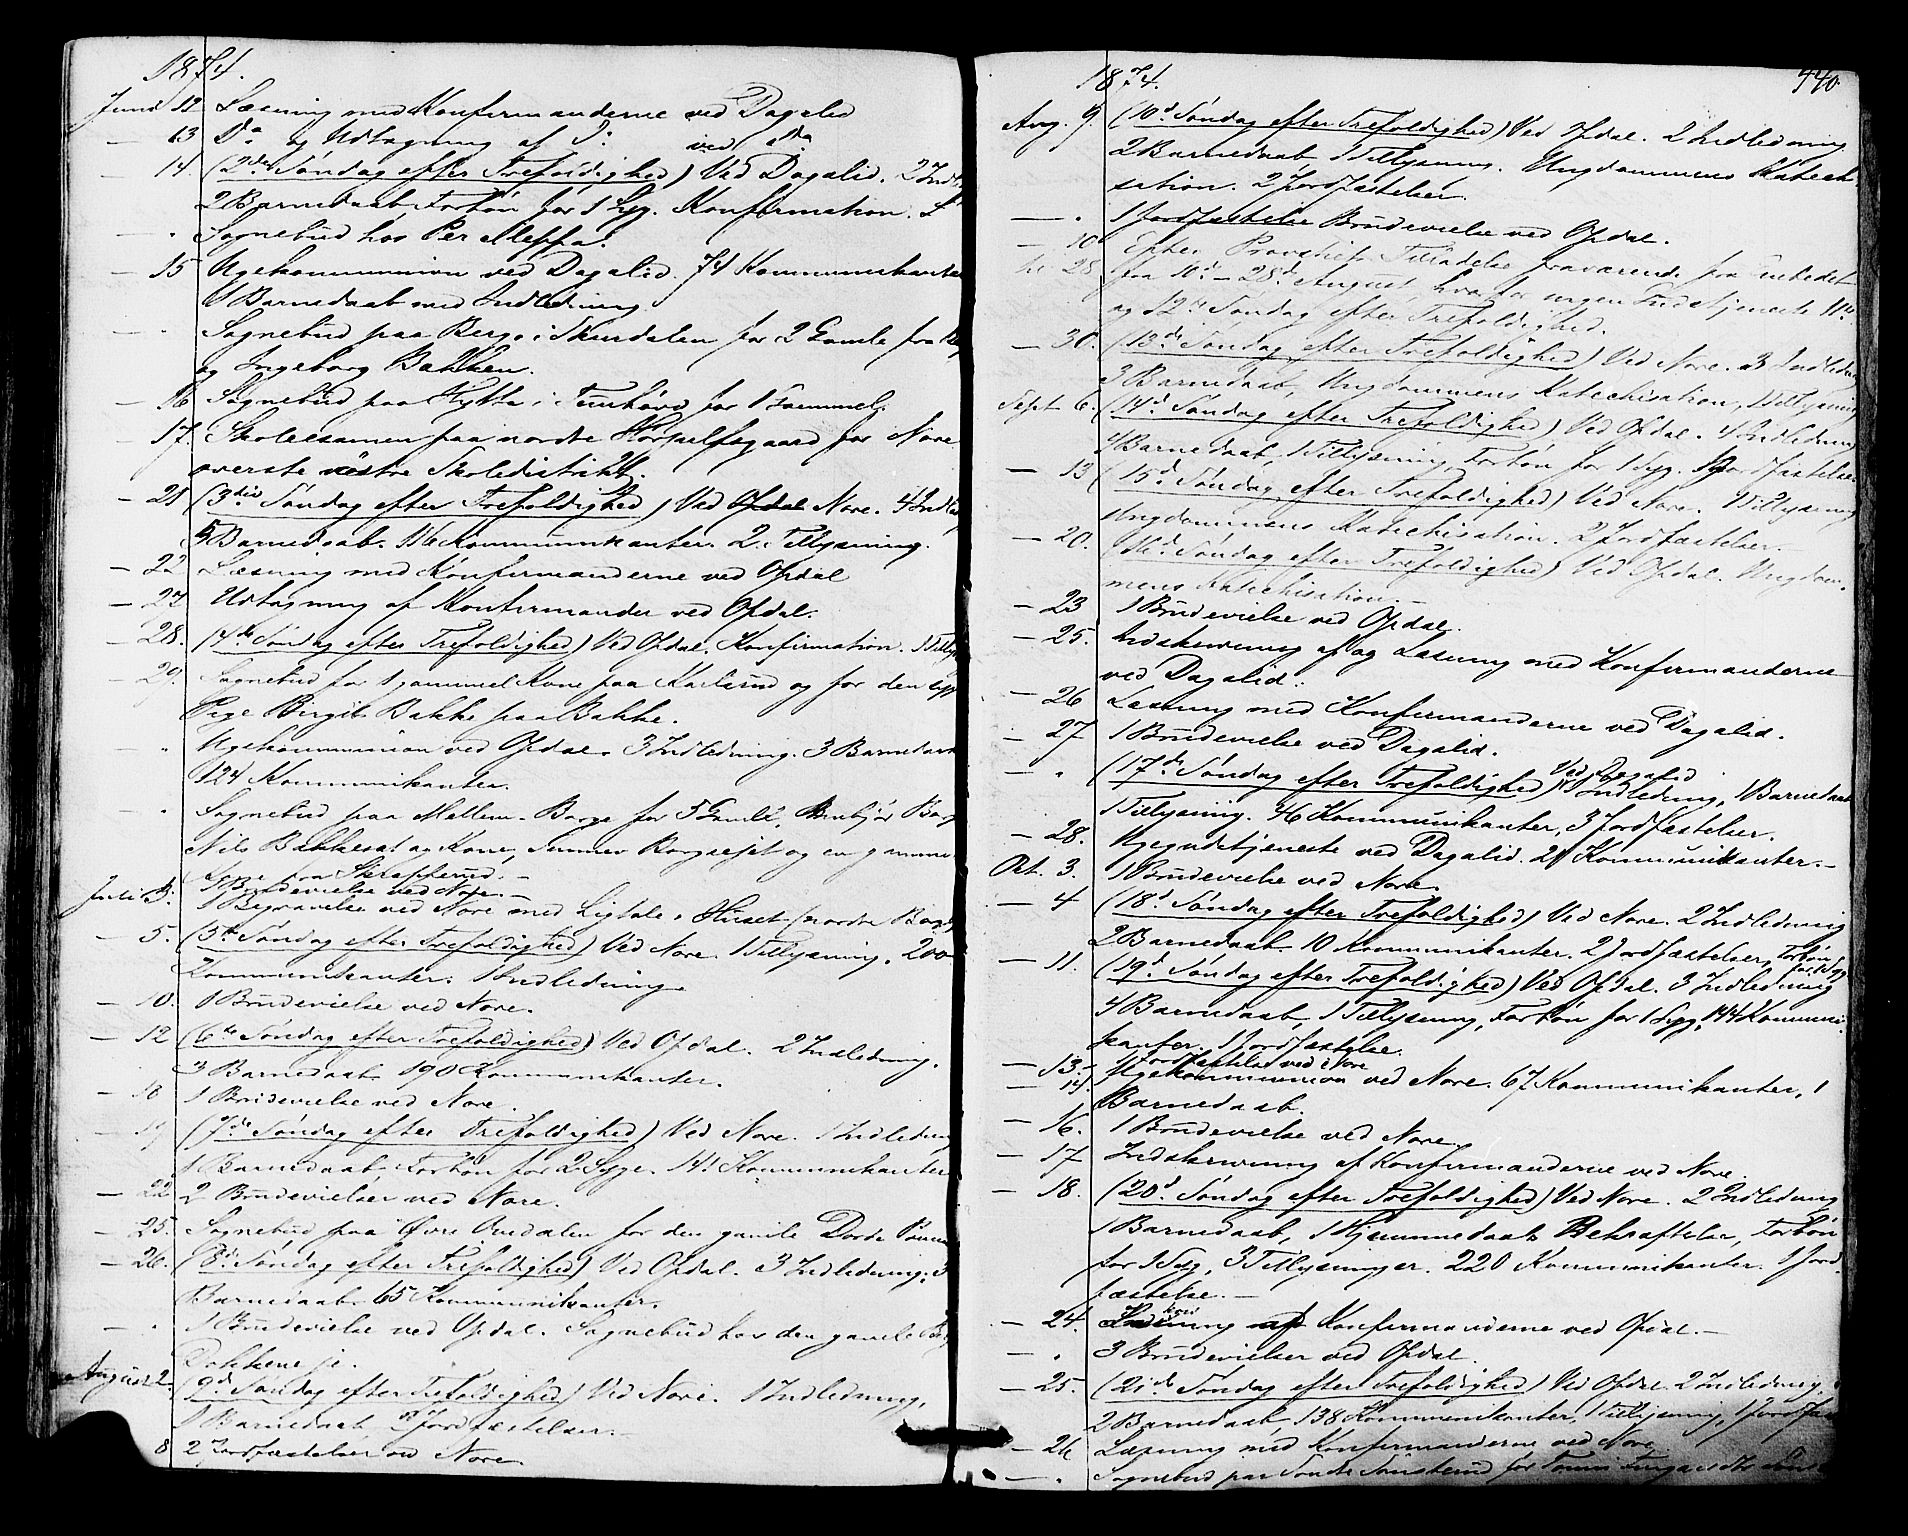 1874.
Juni 12 Læsning med Konfirmanderne ved Dagalid
— 13 Do og Udtagning af Do ved Do
— 14. (2den Søndag efter Trefoldighed) Ved Dagalid. 2 Indl
2 Barnedaab, Forbøn for 1 Syg. Konfirmation.
— " Sognebud hos Per
— 15 Ugekommunion ved Dagalid. 74 Kommunikanter
1 Barnedaab med Indledning
— " Sognebud paa Berg i Skurdalen for 2 Gamle fra
og Ingeborg Bakken.
— 16 Sognebud paa Hytta i Tunhövd for 1 Gammel.
— 17. Skoleexamen paa nordre for Nore
øverste vestre Skoledistrikt.
— 21 (3die Søndag efter Trefoldighed) Ved Opdal Nore. 4 Indled
5 Barnedaab. 116 Kommunikanter. 2 Tillysning.
— 22 Læsning med Konfirmanderne ved Opdal
— 27 Udtagning af Konfirmander ved Opdal.
— 28. (4de Søndag efter Trefoldighed) Ved Opdal. Konfirmation. 1 Tillys
— 29. Sognebud for 1 gammel Kone paa Karlsrud og for den syge
Pige Birgit Bakke paa Bakke.
— " Ugekommunion ved Opdal. 3 Indledning. 3 Barnedaab
124 Kommunikanter.
— " Sognebud paa Mellem-Berge for 5 Gamle,
Nils og Kone, og en gammel
Kone fra
1 Brudevielse ved Nore. —
Juli 3. 1 Begravelse ved Nore med Ligtale i Huset (nordre
— 5. (5te Søndag efter Trefoldighed) Ved Nore. 1 Tillysning. 200
Kommunikanter. 1 Indledning.
— 10. 1 Brudevielse ved Nore.
— 12 (6te Søndag efter Trefoldighed) Ved Opdal. 2 Indledning.
3 Barnedaab. 190 Kommunikanter.
— 18 1 Brudevielse ved Nore.
— 19 (7de Søndag efter Trefoldighed) Ved Nore. 1 Indledning
1 Barnedaab, Forbøn for 2 Syge. 141 Kommunikanter
— 22 2 Brudevielser ved Nore.
— 25. Sognebud paa Øvre for den gamle Dorde
— 26. (8de Søndag efter Trefoldighed) Ved Opdal. 3 Indledning. 3
Barnedaab. 65 Kommunikanter.
— " 1 Brudevielse ved Opdal. Sognebud hos den gamle

August 2. (9de Søndag efter Trefoldighed) Ved Nore. 1 Indledning,
1 Barnedaab, 2 Jordfæstelser.
8 2 Jordfæstelser ved Nore.
1874. 440
Aug. 9. (10d Søndag efter Trefoldighed) Ved Opdal. 2 Indledning
2 Barnedaab, 1 Tillysning. Ungdommens Katechi-
sation. 2 Jordfæstelser.
— " 1 Jordfæstelse Brudevielse ved Opdal.
— 10 Efter Provstiets Tilladelse fraværende fra Embedet
til 28. fra 10d – 28d August, hvorfor ingen Gudstjeneste 11te
og 12te Søndag efter Trefoldighed.
— 30. (13de Søndag efter Trefoldighed) Ved Nore. 3 Indledning
3 Barnedaab, Ungdommens Katechisation, 1 Tillysning
Sept 6. (14d Søndag efter Trefoldighed) Ved Opdal. 4 Indledning
4 Barnedaab, 1 Tillysning, Forbøn for 1 Syg. Jordfæstelser
— 13 (15d Søndag efter Trefoldighed) Ved Nore. 1 Tillysning
Ungdommens Katechisation. 2 Jordfæstelser.
— 20. (16d Søndag efter Trefoldighed) Ved Opdal. Ungdom-
mens Katechisation. —
— 23 1 Brudevielse ved Opdal.
— 25. Indskrivning af og Læsning med Konfirmanderne
ved Dagalid.
— 26 Læsning med Konfirmanderne ved Dagalid.
— 27 1 Brudevielse ved Dagalid.
— " (17de Søndag efter Trefoldighed) Ved Dagalid 1 Indledning, 1 Barnedaab
1 Tillysning. 46 Kommunikanter, 3 Jordfæstelser.
— 28. Ugegudstjeneste ved Dagalid. 21 Kommunikanter. —
Okt. 3. 1 Brudevielse ved Nore.
— 4 (18d Søndag efter Trefoldighed) Ved Nore. 2 Indledning
2 Barnedaab 10 Kommunikanter. 2 Jordfæstelser, Forbøn for 1 Syg
— 11. (19d Søndag efter Trefoldighed) Ved Opdal. 3 Indledning
4 Barnedaab, 1 Tillysning, Forbøn for 1 Syg, 144 Kommuni-
kanter. 1 Jordfæstelse.
— 13. 1 Jordfæstelse ved Nore
— 14 Ugekommunion ved Nore. 67 Kommunikanter, 1
Barnedaab.
— 16. 1 Brudevielse ved Nore.
— 17 Indskrivning af Konfirmanderne ved Nore.
— 18. (20d Søndag efter Trefoldighed) Ved Nore. 2 Indledning
1 Barnedaab, 1 Hjemmedaabs Bekræftelse, Forbøn
for 1 Syg, 3 Tillysninger. 220 Kommunikanter. 1 Jord-
fæstelse. —
— 24. Konfirmanderne ved Opdal. —
— " 3 Brudevielser ved Opdal.
— 25. (21de Søndag efter Trefoldighed) Ved Opdal. 2 Indledning.
2 Barnedaab, 138 Kommunikanter, 1 Tillysning, 1 Jordfæs
— 26 Læsning med Konfirmanderne ved Nore
— " Sognebud paa for